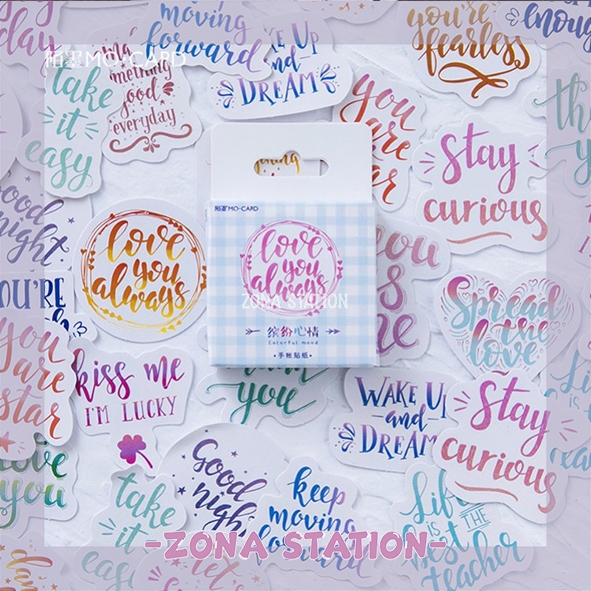 moving
forward
you're
fearless
enough
陌墨MO·CARD
WAKE UP
and
DREAM
take
it
easy
something
good
everyday
you
are
star
stay
curious
good
night
love
you
always
陌墨MO-CARD
love
you
always
ZONA STATION
缤纷心情
Colorful mood
·手帐贴纸·
Spread
the
love
YOU'RE
you
are
star
kiss me
I'M LUCKY
you
WAKE UP
and
DREAM
stay
curious
love
you
good
night
keep
moving
forward
take
it
easy
Life
IS THE
best
teacher
-ZONA STATION-